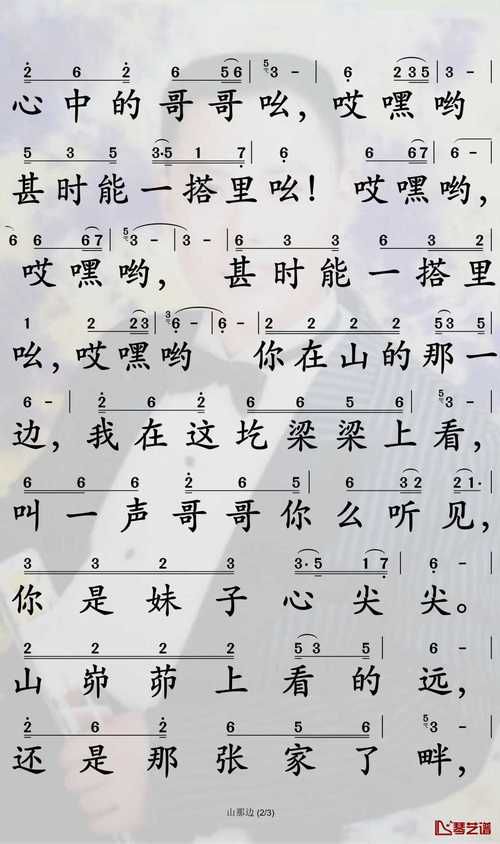 2 6 2 6 5 6 | 5 3 - | 6 2 3 5 | 3 -
心中的哥哥吆，哎嘿哟
5 3 5 | 3·5 1 7 | 6 6 6 7 | 6 -
甚时能一搭里吆！哎嘿哟，
6 6 6 7 | 5 3 - | 3 - | 6 3 3 6 3 2
哎嘿哟，甚时能一搭里
1 2 2 3 | 3 6 - | 6 - | 2 2 2 2 5 3 5
吆，哎嘿哟 你在山的那一
6 - | 2 6 2 | 6 6 5 6 | 5 3 - |
边，我在这圪梁梁上看，
6 6 6 2 6 5 | 6 3 2 | 2 1· |
叫一声哥哥你么听见，
3 3 2 3 | 3·5 1 7 | 6 -
你是妹子心尖尖。
2 2 2 2 | 5 3 5 | 6 -
山峁茆上看的远，
2 6 2 6 5 6 | 5 3 -
还是那张家了畔，
山那边 (2/3)
琴艺谱